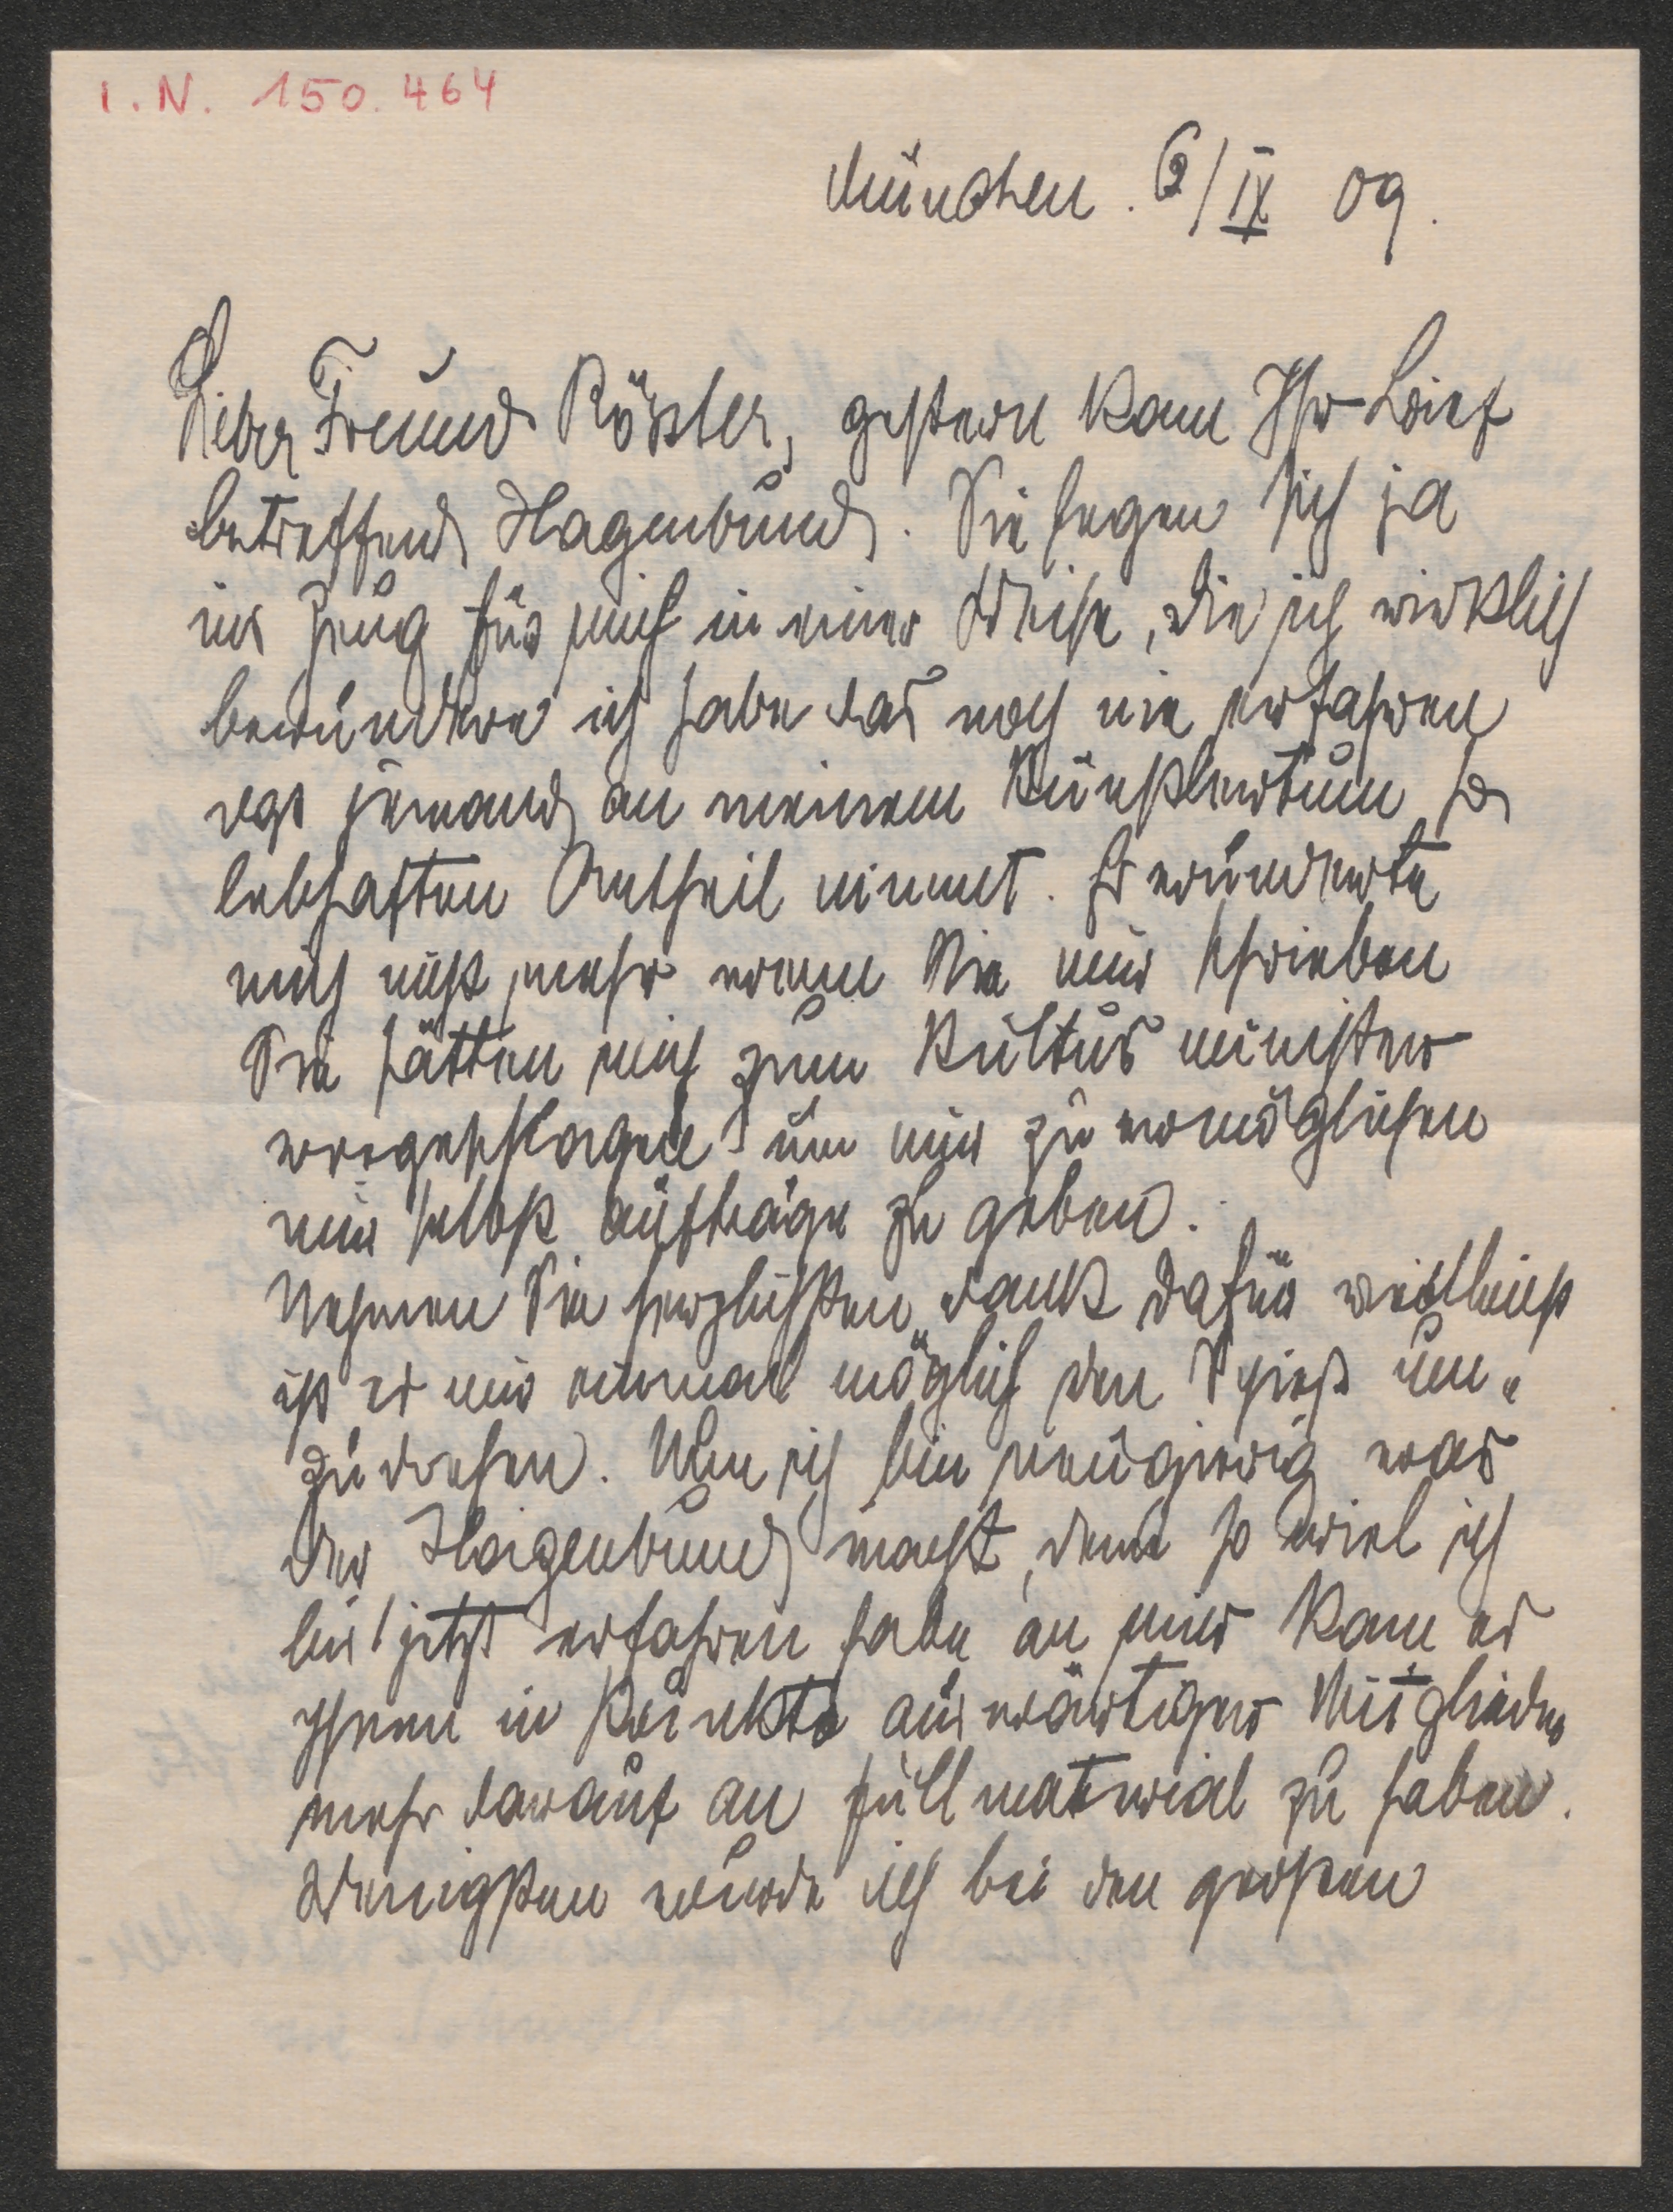 I.N. 150.464
München. 6/IX 09.
Lieber Freund Rößler, gestern kam Ihr Brief
betreffend Hagenbund. Sie legen sich ja
ins Zeug für mich in einer Weise, die ich wirklich
bewundere ich habe das noch nie erfahren
das jemand an meinem Künstlertum so
lebhaften Antheil nimmt. Es wunderte
mich nicht mehr wenn Sie mir schrieben
Sie hätten mich zum Kultus minister
vorgeschlagen um mir zu ermöglichen
mir selbst aufträge zu geben.
Nehmen Sie herzlichsten dank dafür vielleicht
ist es mir einmal möglich den Spieß um-
zudrehen. Nun ich bin neugierig was
der Hagenbund macht, denn so viel ich
bis jetzt erfahren habe an mir kam es
Ihnen in Punkto auswärtiger Mitglieder
mehr darauf an füllmaterial zu haben.
Wenigsten wurde ich bei den großen